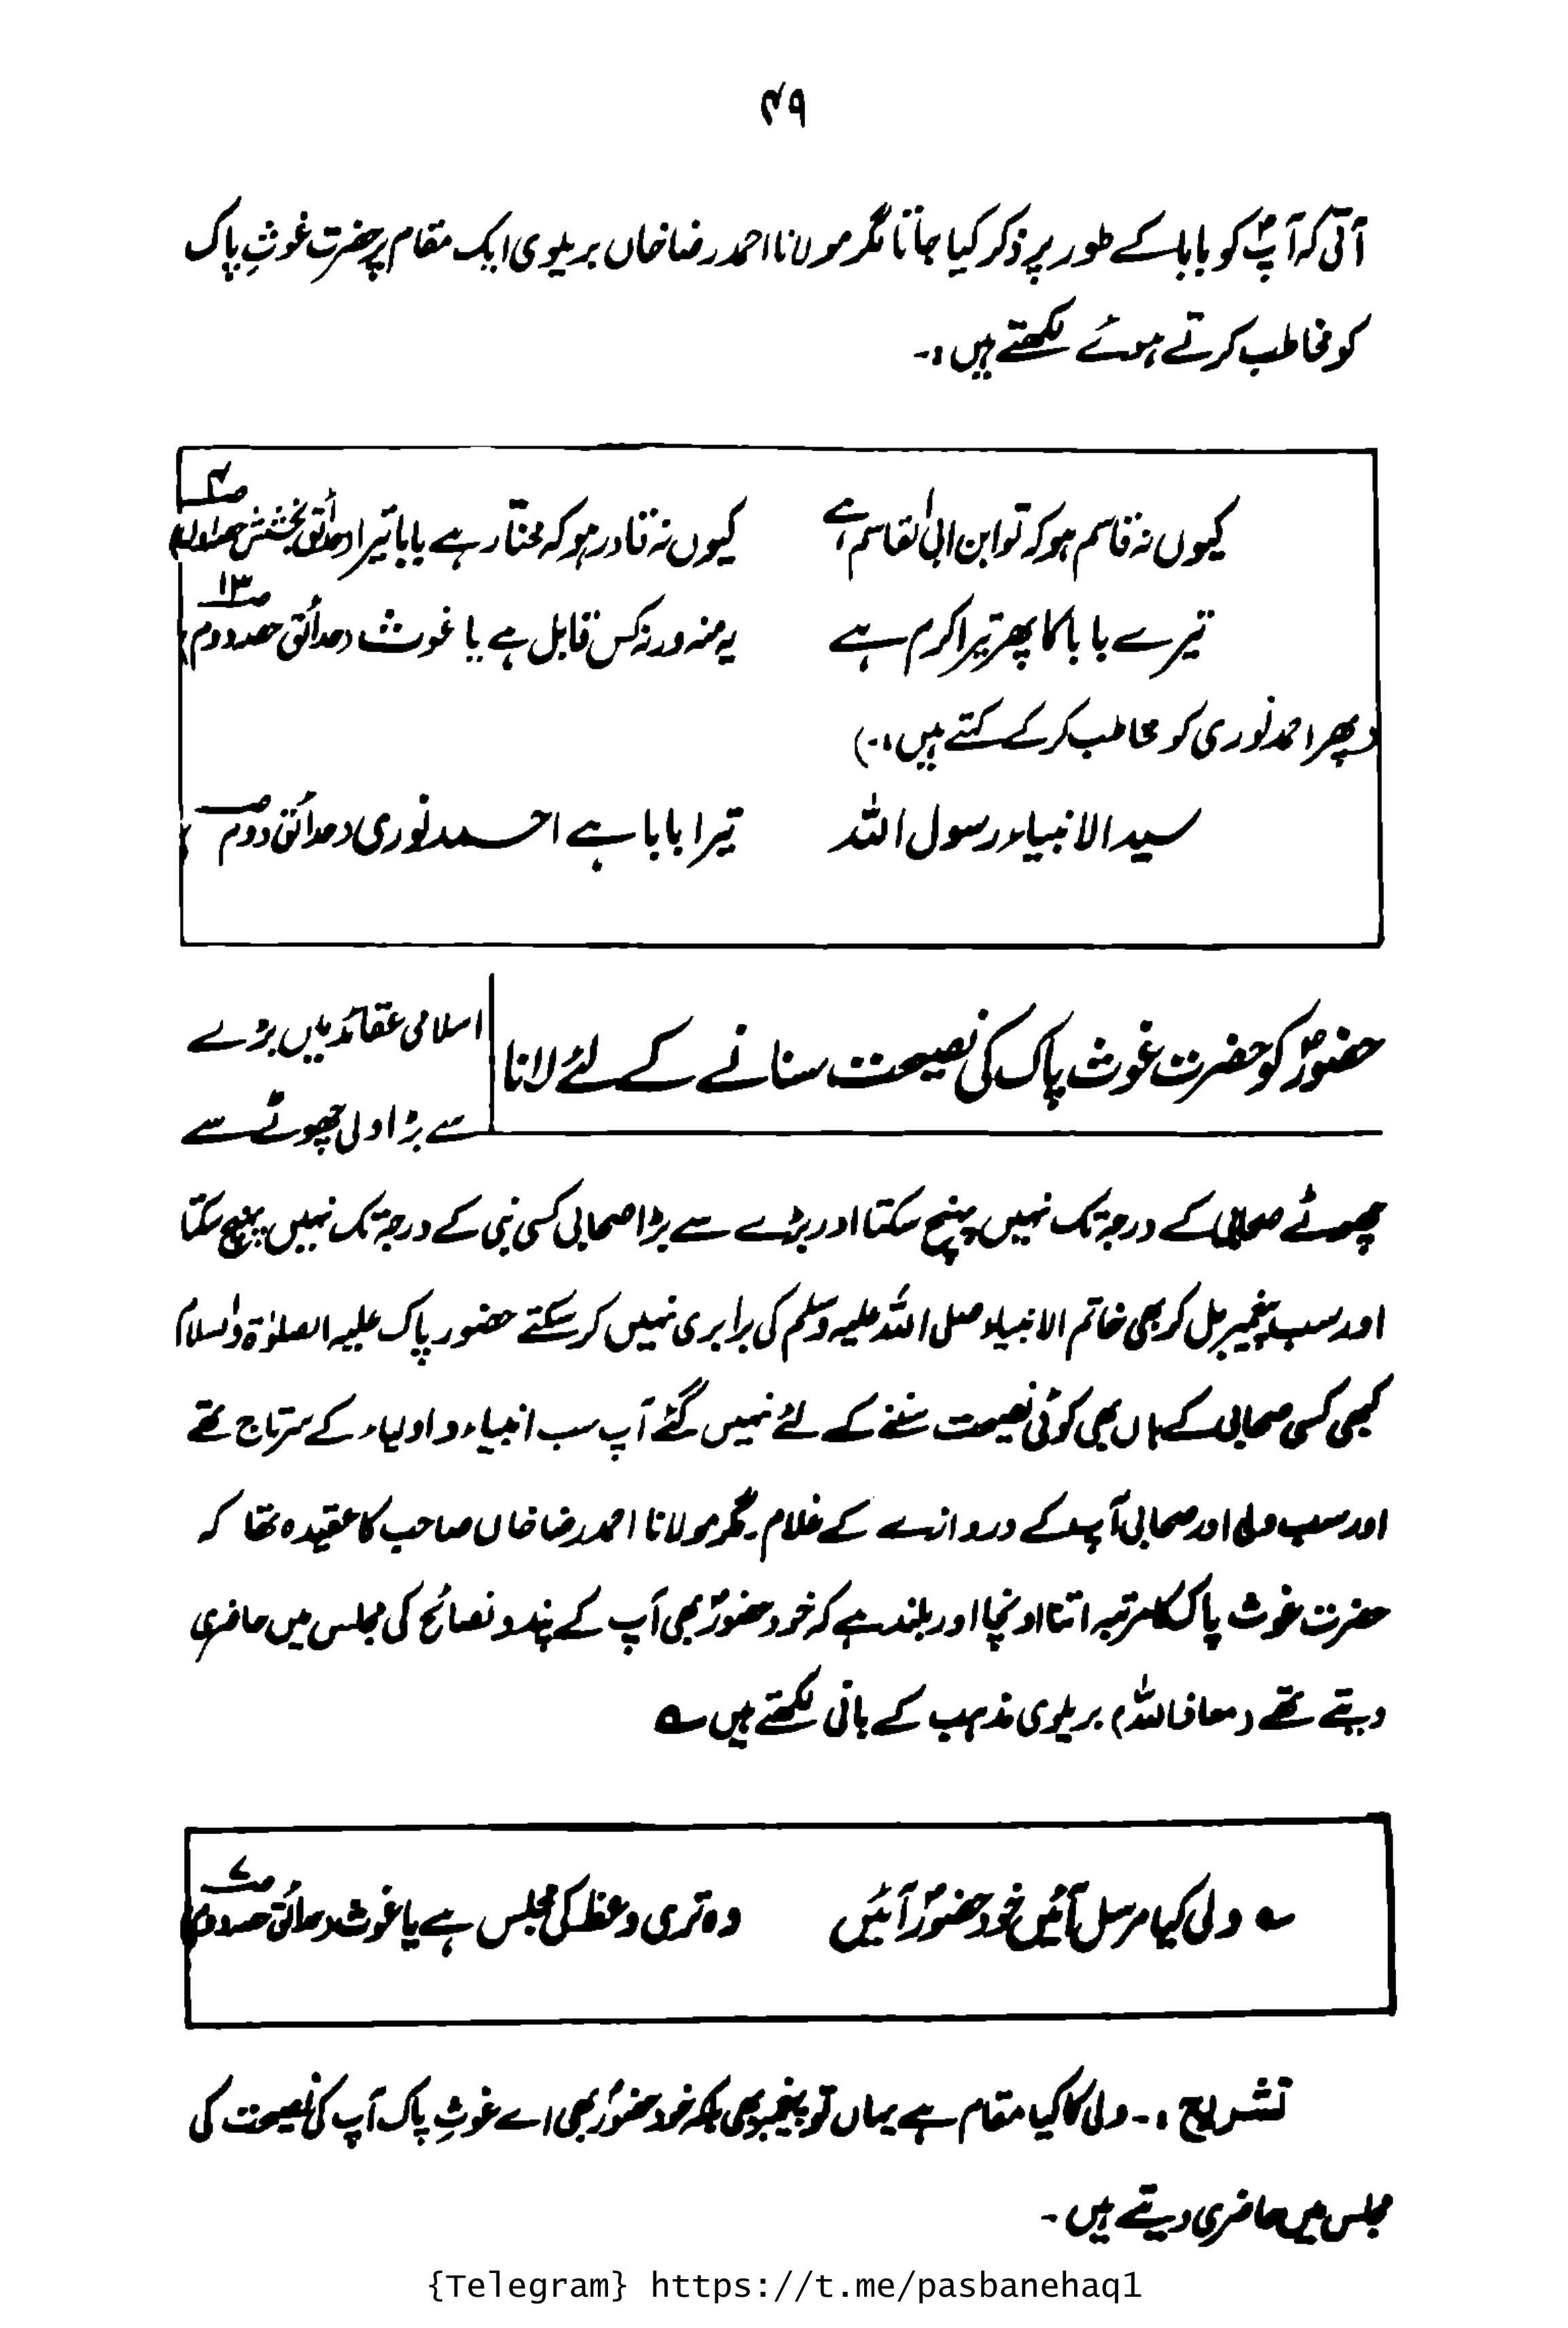 ۴۹
آتی کہ آپؐ کو بابا کے طور پر ذکر کیا جاتا مگر مولانا احمد رضا خاں بریلوی ایک مقام پر حضرت غوثِ پاک
کو مخاطب کرتے ہوئے لکھتے ہیں :-
کیوں نہ قاسم ہو کہ تو ابن ابی القاسم ہے کیوں نہ قادر ہو کہ مختار ہے بابا تیرا (حدائق بخشش حصہ اول ص۴)
تیرے بابا کا پھر تیرا کرم ہے یہ منہ ورنہ کس قابل ہے یا غوث (حدائق حصہ دوم ص۱۳)
(پھر احمد نوری کو مخاطب کرکے کہتے ہیں :-)
سید الانبیاء رسول اللہ تیرا بابا ہے احمد نوری (حدائق دوم ص)
حضورؐ کو حضرت غوث پاک کی نصیحت سنانے کے لئے لانا
اسلامی عقائد میں بڑے
سے بڑا ولی چھوٹے سے
چھوٹے صحابی کے درجہ تک نہیں پہنچ سکتا اور بڑے سے بڑا صحابی کسی نبی کے درجہ تک نہیں پہنچ سکتا
اور سب پیغمبر مل کر بھی خاتم الانبیاء صلی اللہ علیہ وسلم کی برابری نہیں کر سکتے حضور پاک علیہ الصلوٰۃ والسلام
کبھی کسی صحابی کے ہاں بھی کوئی نصیحت سننے کے لئے نہیں گئے آپ سب انبیاء و اولیاء کے سرتاج تھے
اور سب ولی اور صحابی آپ کے دروازے کے غلام۔ مگر مولانا احمد رضا خاں صاحب کا عقیدہ تھا کہ
حضرت غوث پاک کا مرتبہ اتنا اونچا اور بلند ہے کہ خود حضورؐ بھی آپ کے پند و نصائح کی مجلس میں حاضری
دیتے تھے (معاذ اللہ) بریلوی مذہب کے بانی لکھتے ہیں ؎
؎ ولی کیا مرسل آئیں خود حضورؐ آئیں وہ تری وعظ کی مجلس ہے یا غوث (حدائق حصہ دوم ص۷)
تشریح :- ولی کا کیا مقام ہے یہاں تو پیغمبر بھی بلکہ خود حضورؐ بھی اے غوثِ پاک آپ کی نصیحت کی
مجلس میں حاضری دیتے ہیں -
{Telegram} https://t.me/pasbanehaq1